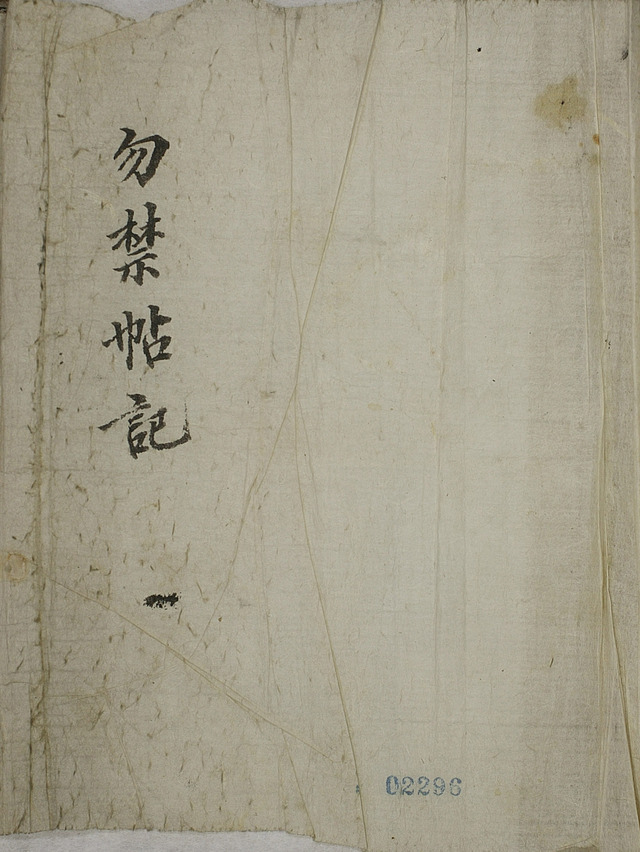 勿禁帖記
一
02296